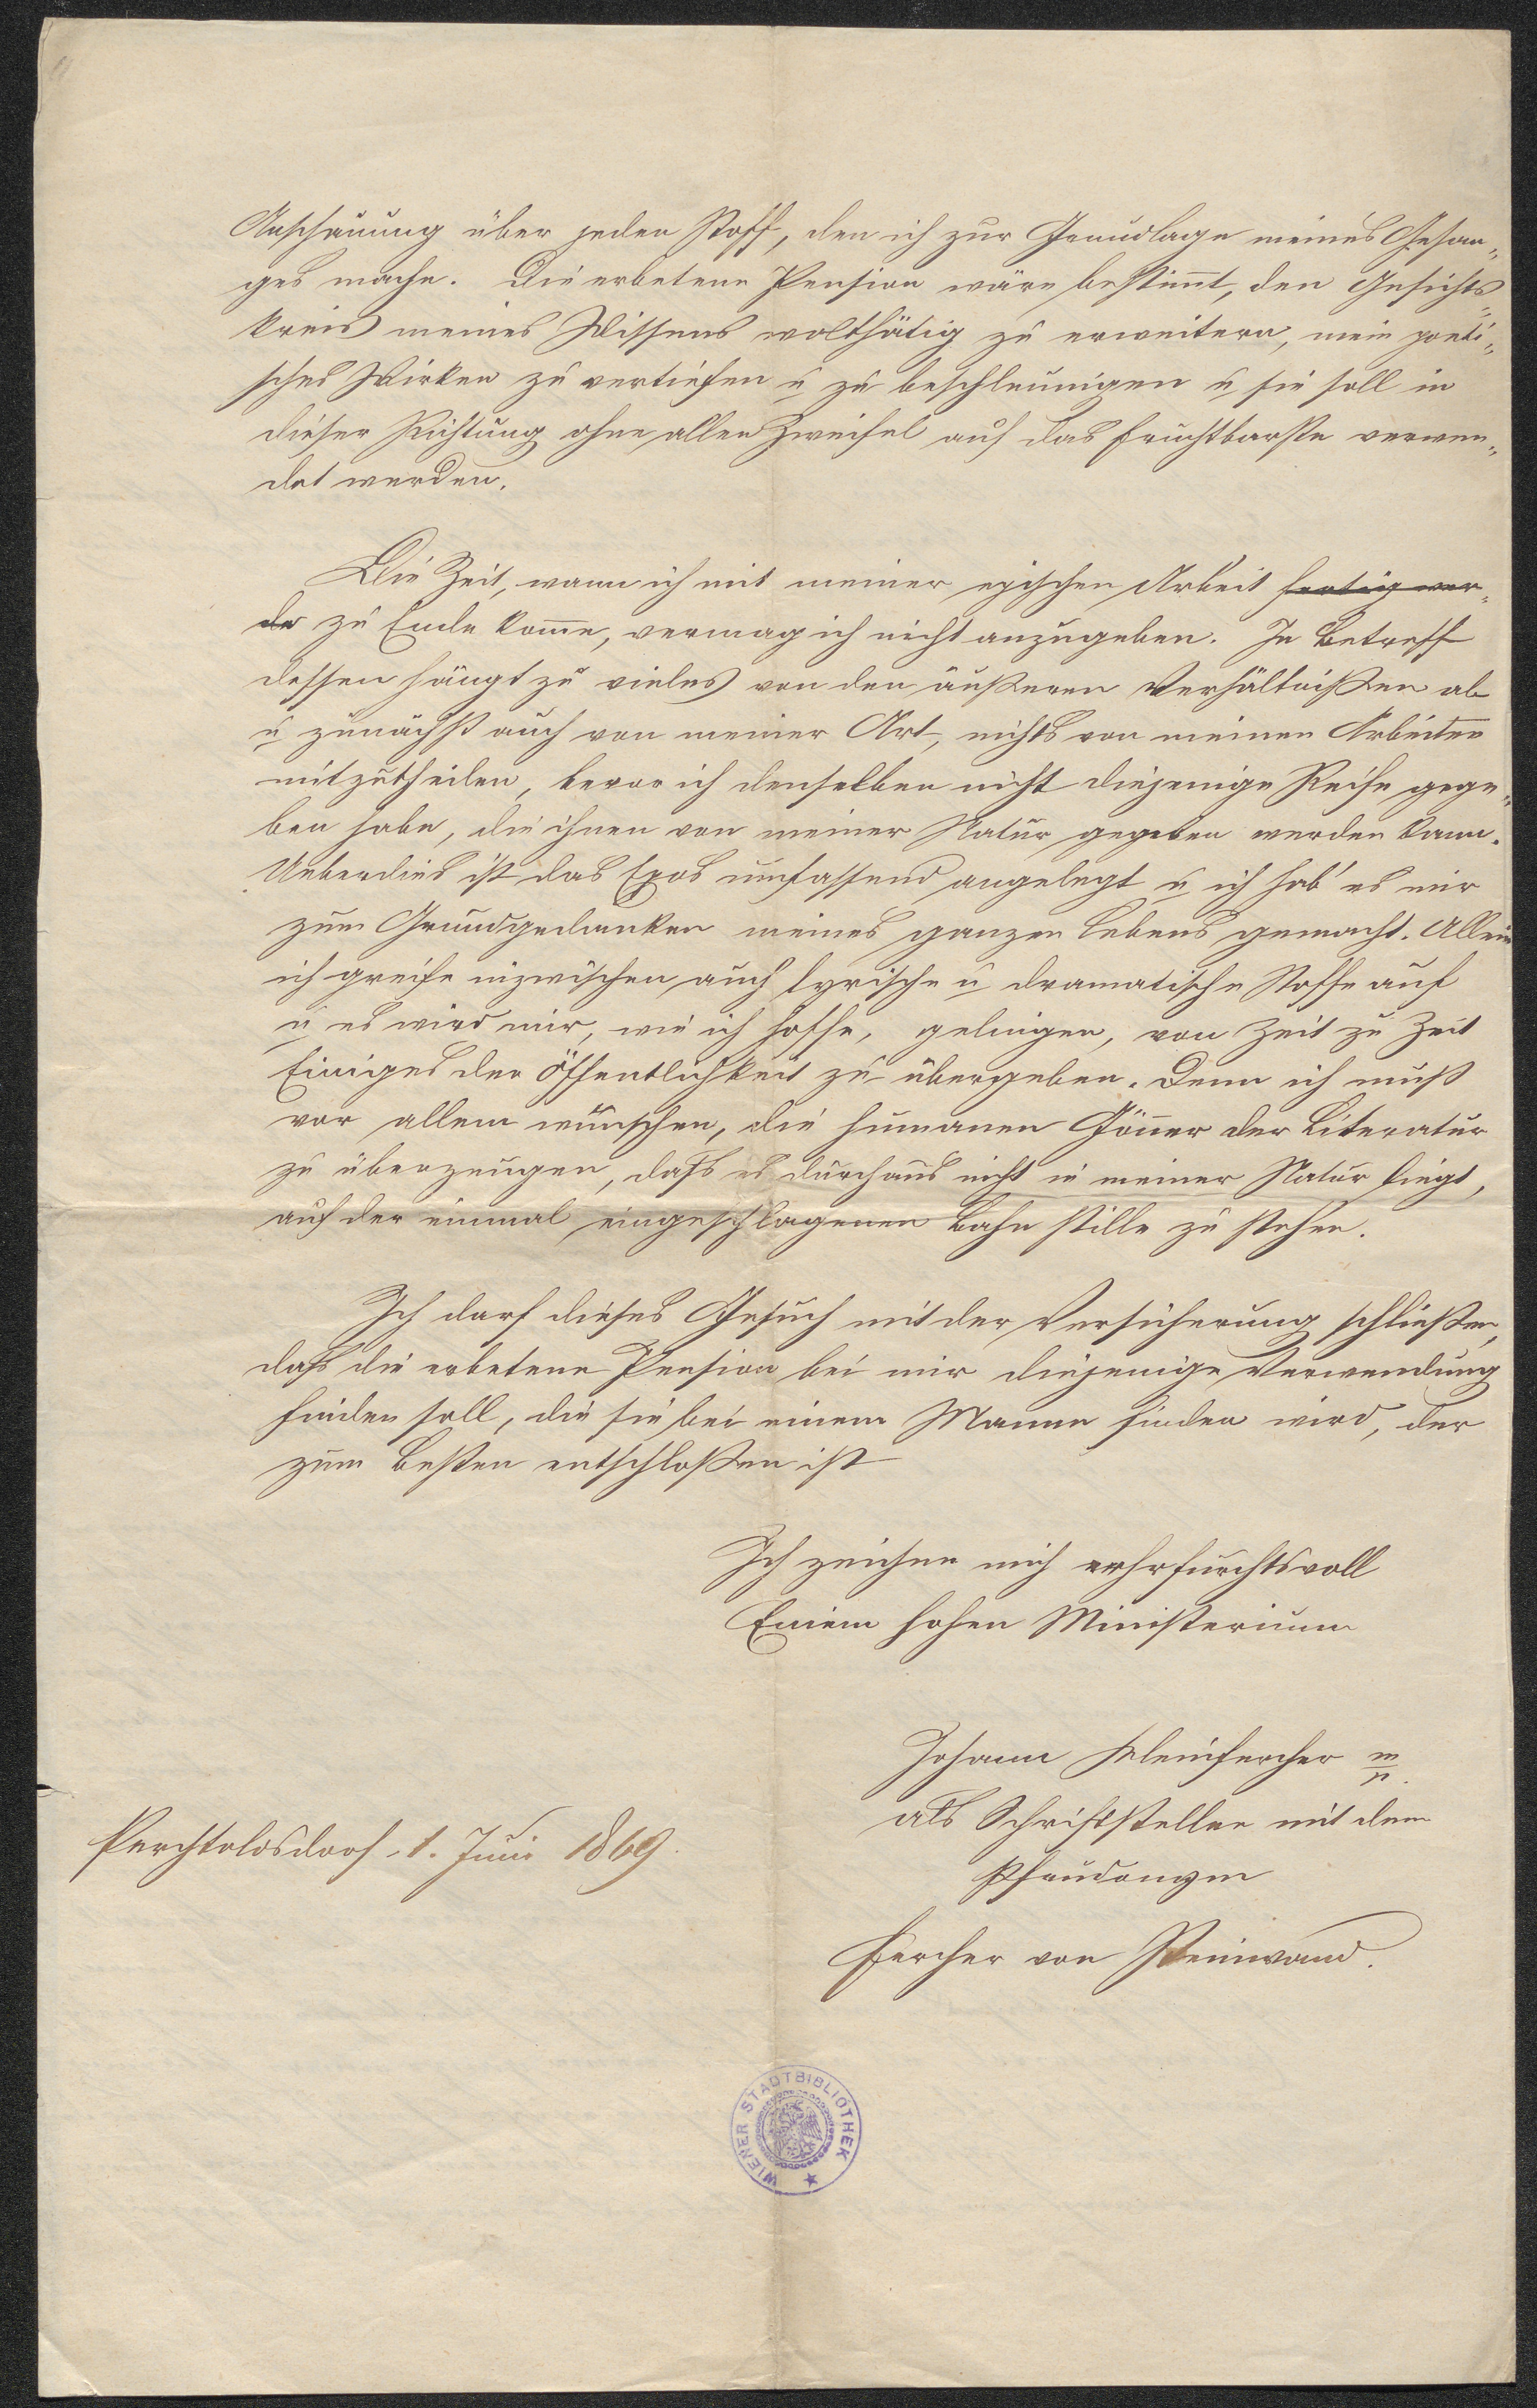 Anschauung über jeden Stoff, den ich zur Grundlage meines Gesan„
ges mache. Die erbetene Pension wäre bestimmt, den Gesichts„
kreis meines Wissens wolthätig zu erweitern, mein poeti„
sches Wirken zu vertiefen u zu beschleunigen u sie soll in
dieser Richtung ohne allen Zweifel auf das Fruchtbarste verwen„
det werden.
Die Zeit, wann ich mit meiner epischen Arbeit fertig wer„
de zu Ende kome, vermag ich nicht anzugeben. In Betreff
dessen hängt zu vieles von den äußeren Verhältnißen ab
u zunächst auch von meiner Art, nichts von meinen Arbeiten
mitzutheilen, bevor ich denselben nicht diejenige Reife gege„
ben habe, die ihnen von meiner Natur gegeben werden kann.
Ueberdies ist das Epos umfassend angelegt u ich hab' es mir
zum Grundgedanken meines ganzen Lebens gemacht. Allein
ich greife inzwischen auch lyrische u dramatische Stoffe auf
u es wird mir, wie ich hoffe, gelingen, von Zeit zu Zeit
Einiges der Öffentlichkeit zu übergeben. Denn ich muß
vor allem wünschen, die humanen Gönner der Literatur
zu überzeugen, daß es durchaus nicht in meiner Natur liegt,
auf der einmal eingeschlagenen Bahn stille zu stehen.
Ich darf dieses Gesuch mit der Versicherung schließen,
daß die erbetene Pension bei mir diejenige Verwendung
finden soll, die sie bei einem Manne finden wird, der
zum Besten entschloßen ist
Ich zeichne mich ehrfurchtsvoll
Einem hohen Ministerium
Johann Kleinfercher m/p.
als Schriftsteller mit dem
Pseudonym
Fercher von Steinwand.
Perchtoldsdorf, 1. Juni 1869.
WIENER STADTBIBLIOTHEK